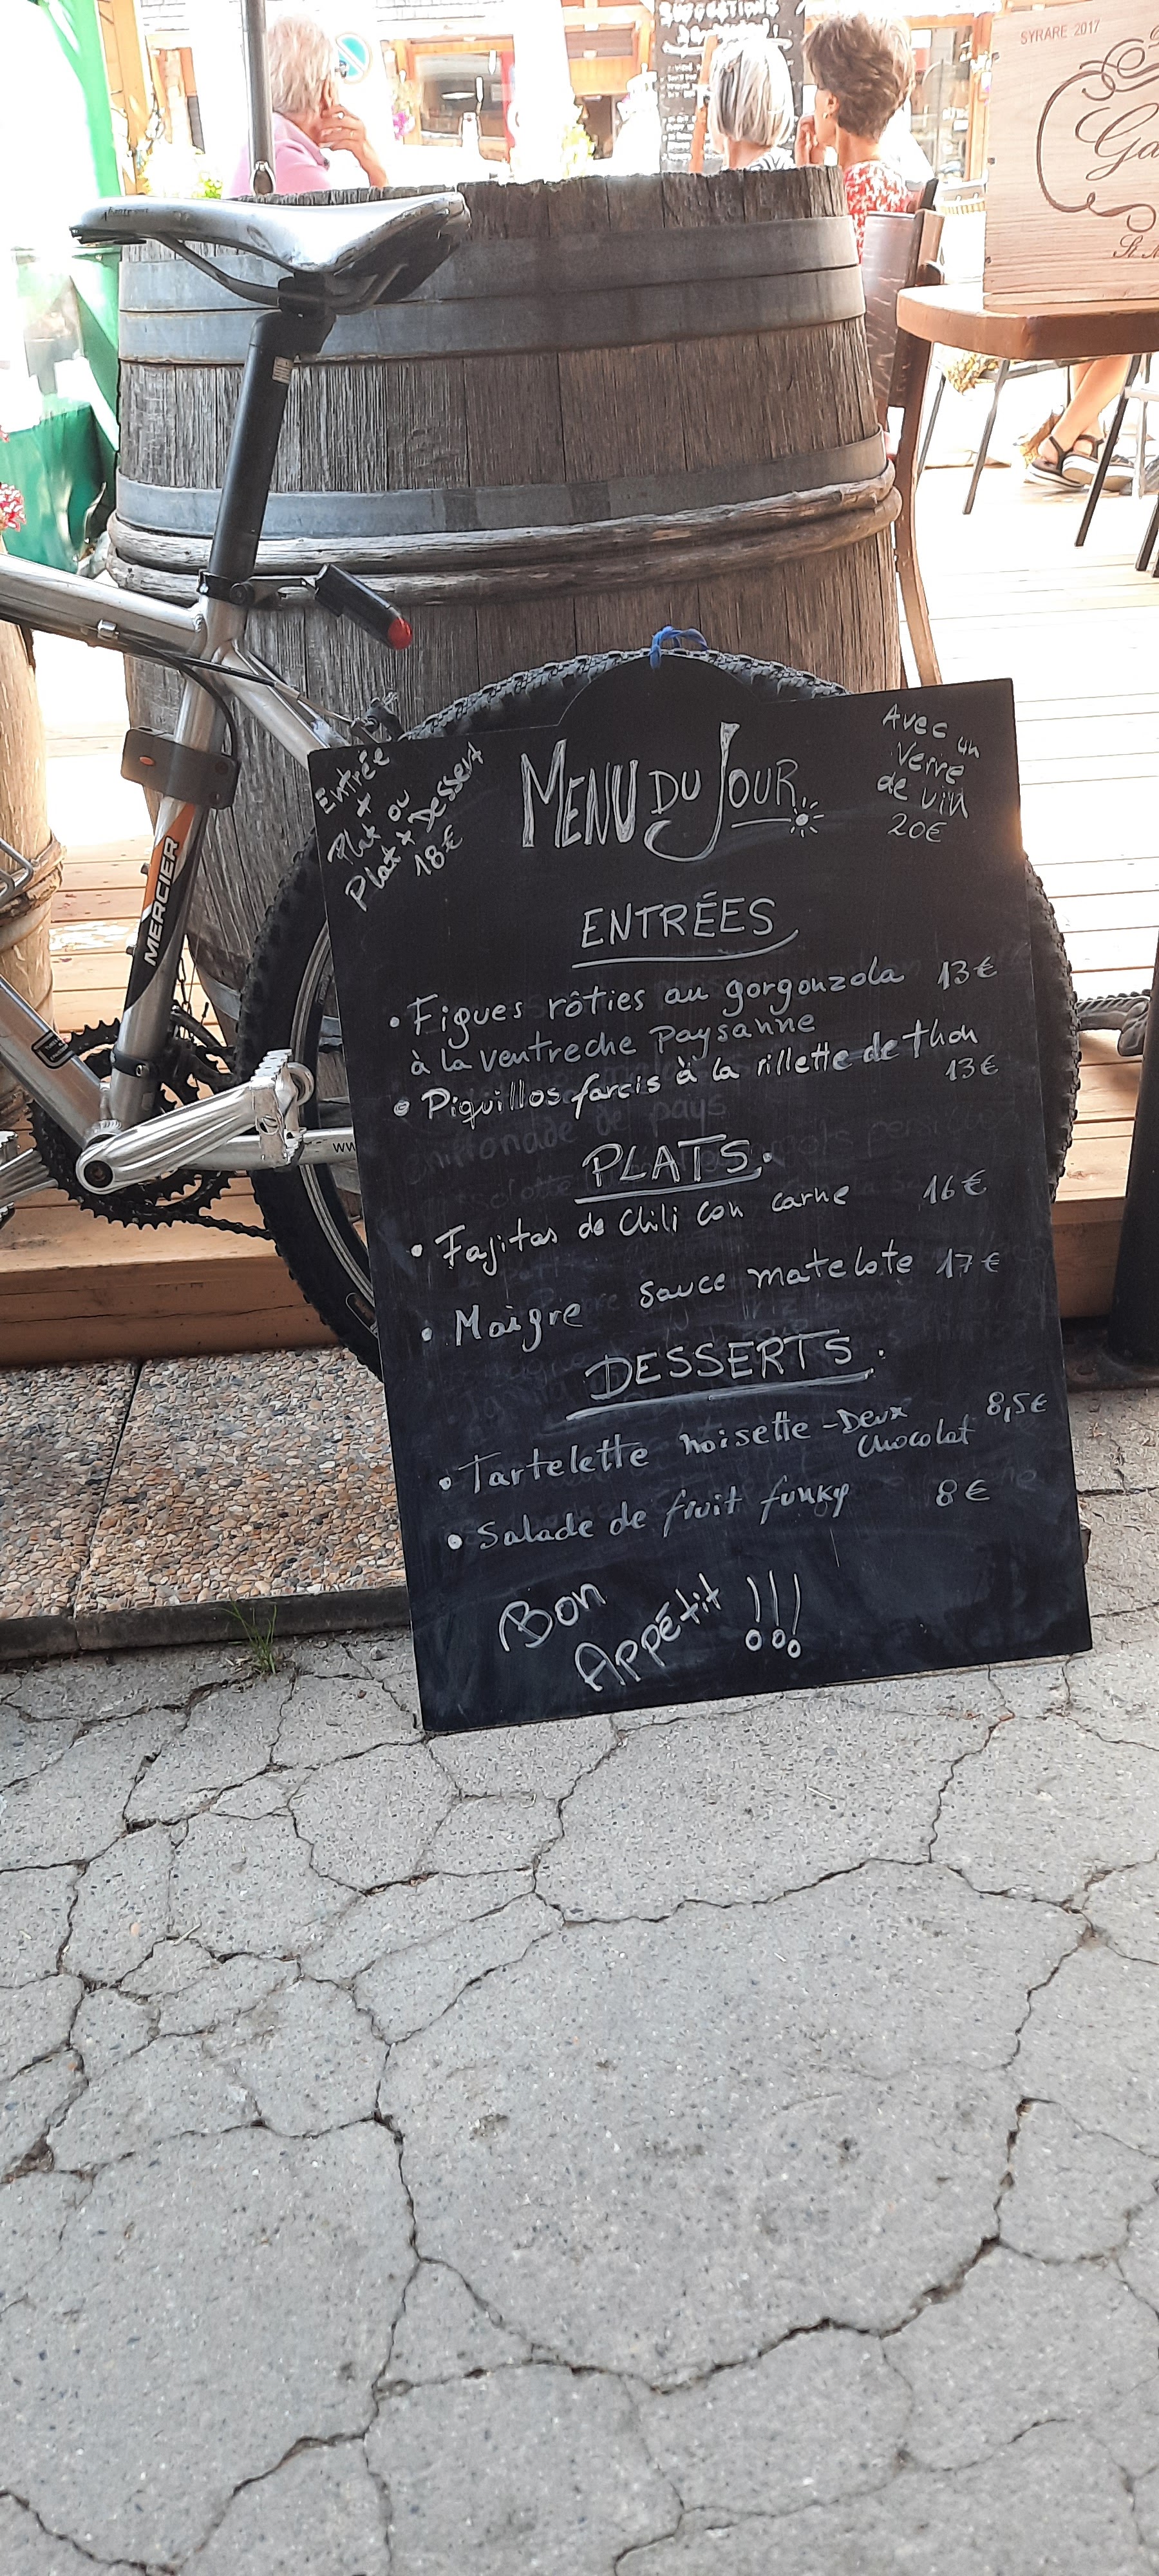 SUGGESTIONS
SYRARE 2017
Ga
St
MERCIER
www
Entrée
+
Plat ou
Plat + Dessert
18€
MENU DU JOUR
Avec un
verre
de vin
20€
ENTRÉES
• Figues rôties au gorgonzola 13€
à la ventreche paysanne
• Piquillos farcis à la rillette de thon
13€
PLATS.
• Fajitas de Chili con carne 16€
• Maigre sauce matelote 17€
DESSERTS.
• Tartelette noisette - Deux 8,5€
chocolat
• Salade de fruit funky 8€
Bon
Appétit !!!